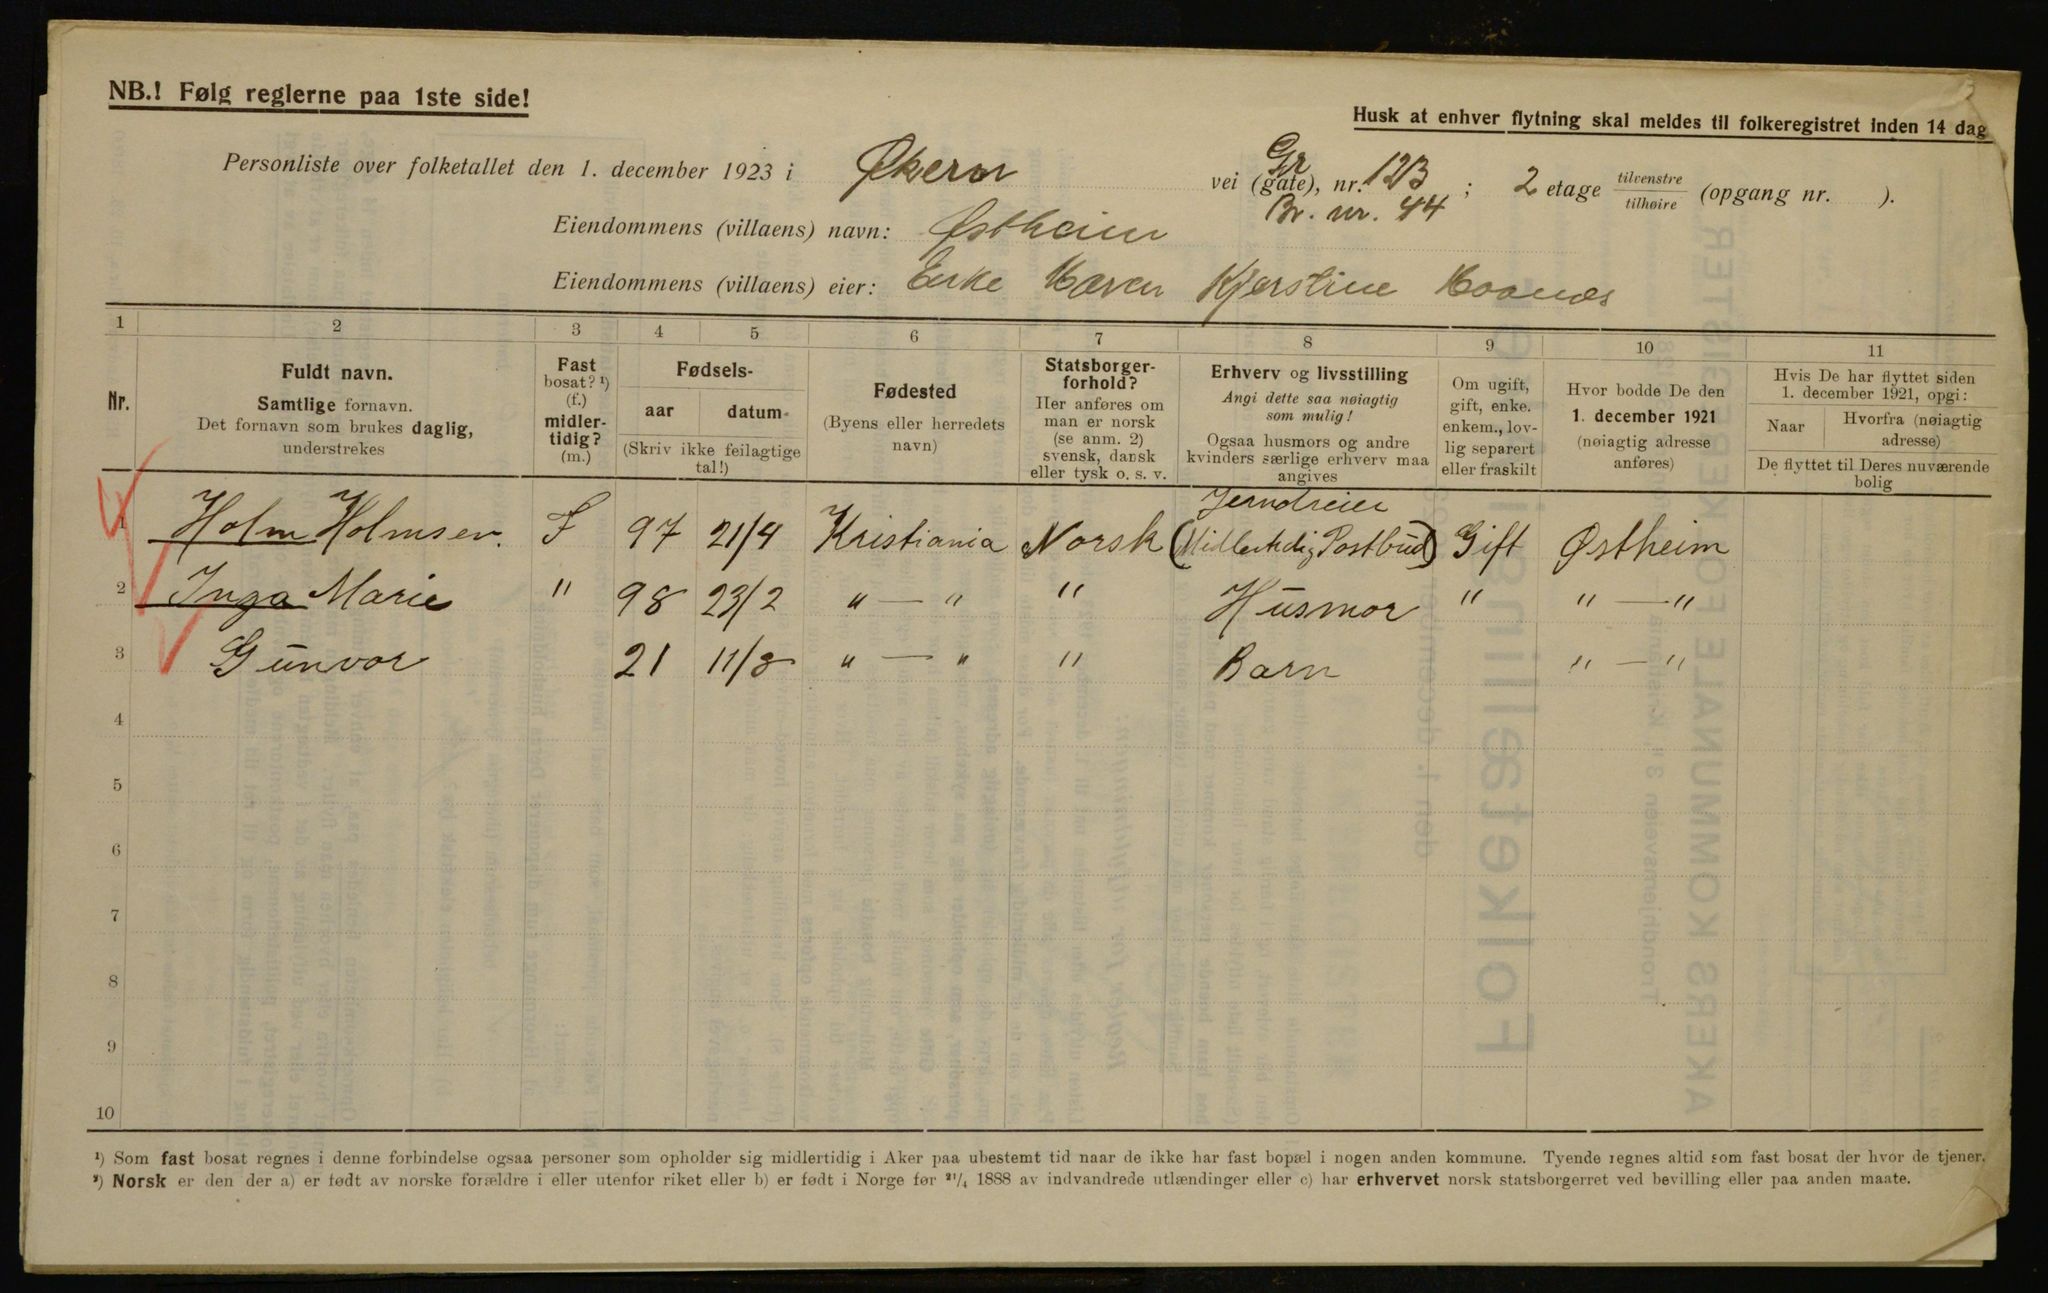 NB.! Følg reglerne paa 1ste side!
Husk at enhver flytning skal meldes til folkeregistret inden 14 dag
Personliste over folketallet den 1. december 1923 i Økern vei (gate), nr. Gr 123 ; 2 etage tilvenstre/tilhøire (opgang nr. ).
Br. nr. 44
Eiendommens (villaens) navn: Østheim
Eiendommens (villaens) eier: Enke Maren Kjerstine
1 2 3 4 5 6 7 8 9 10 11
Nr.
Fuldt navn.
Samtlige fornavn.
Det fornavn som brukes daglig,
understrekes
Fast
bosat? ¹)
(f.)
midler-
tidig?
(m.)
Fødsels-
aar datum
(Skriv ikke feilagtige
tal!)
Fødested
(Byens eller herredets
navn)
Statsborger-
forhold?
Her anføres om
man er norsk
(se anm. 2)
svensk, dansk
eller tysk o. s. v.
Erhverv og livsstilling
Angi dette saa nøiagtig
som mulig!
Ogsaa husmors og andre
kvinders særlige erhverv maa
angives
Om ugift,
gift, enke.
enkem., lov-
lig separert
eller fraskilt
Hvor bodde De den
1. december 1921
(nøiagtig adresse
anføres)
Hvis De har flyttet siden
1. december 1921, opgi:
Naar
Hvorfra (nøiagtig
adresse)
De flyttet til Deres nuværende
bolig
Jerndreier
1 Holm Holmsen. F 97 21/4 Kristiania Norsk (Midlertidig Postbud) Gift Østheim
2 Inga Marie " 98 23/2 " — " " Husmor " " — "
3 Gunvor 21 11/8 " — " " Barn " — "
4
5
6
7
8
9
10
¹) Som fast bosat regnes i denne forbindelse ogsaa personer som opholder sig midlertidig i Aker paa ubestemt tid naar de ikke har fast bopæl i nogen anden kommune. Tyende regnes altid som fast bosat der hvor de tjener.
²) Norsk er den der a) er født av norske forældre i eller utenfor riket eller b) er født i Norge før 21/4 1888 av indvandrede utlændinger eller c) har erhvervet norsk statsborgerret ved bevilling eller paa anden maate.